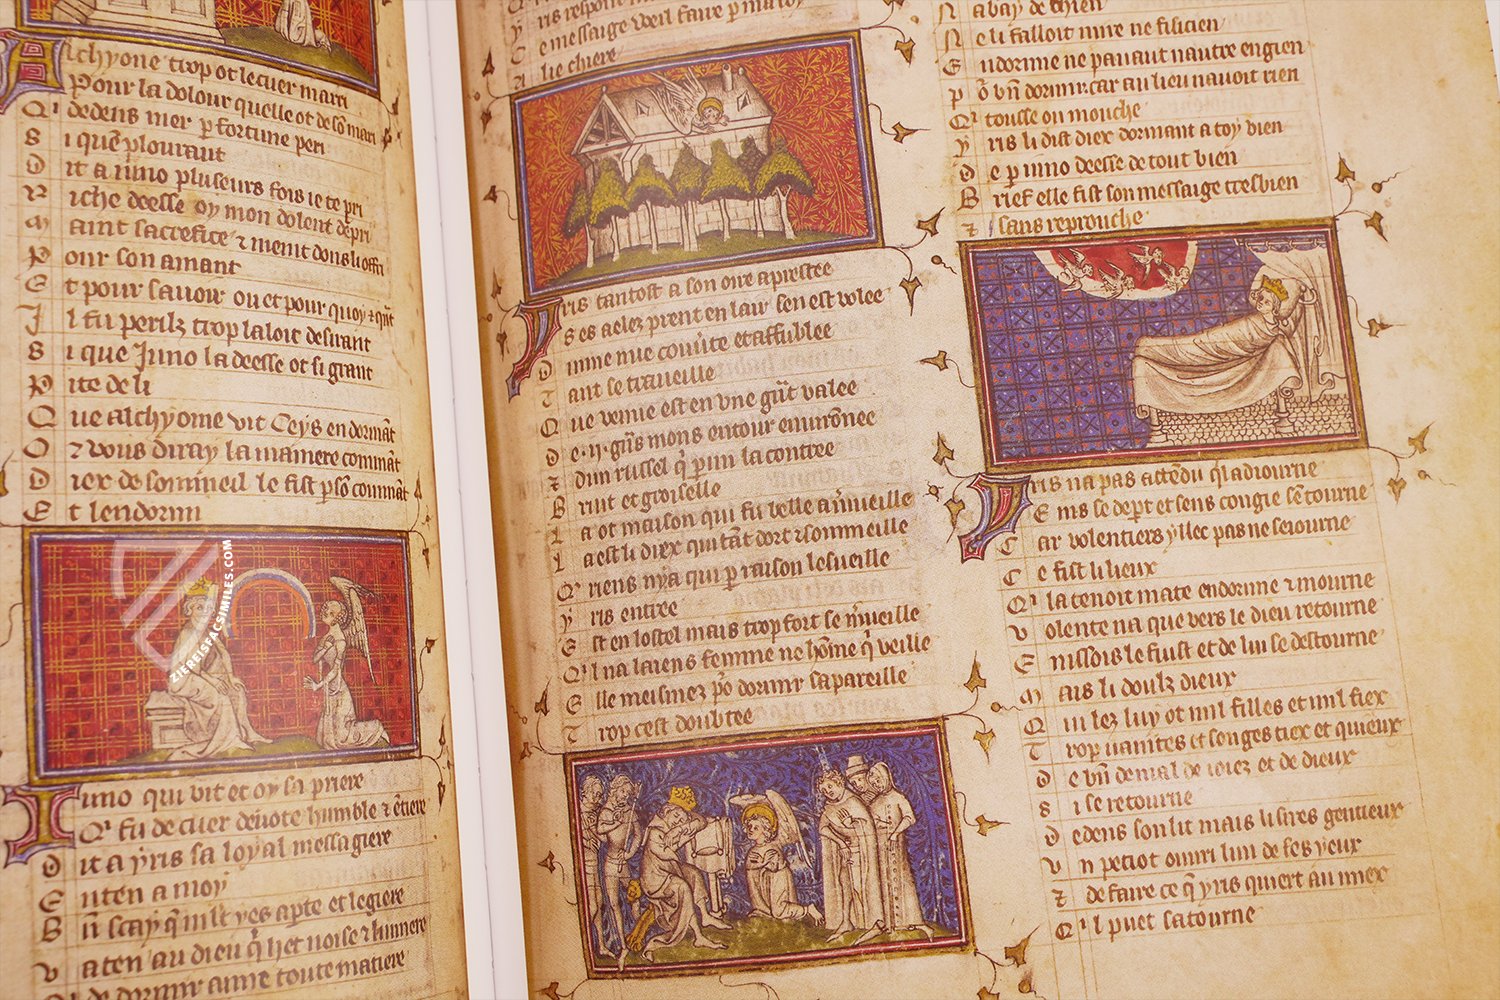 Alchyone trop ot le cuer marri
Pour la dolour quelle ot de sõ mari
Q' dedens mer p fortune peri
S i que plourant
D ist a iuno pluseurs fois ie te pri
R iche deesse oy mon dolent depri
M aint sacrefice ⁊ meint dons li offri
P our son amant
E t pour savoir ou et pour quoy ⁊ qñt
I l fu perilz trop laloit desirant
S i que Juno la deesse ot si grant
P ite de li
Q ue alchyome vit Ceys en dormãt
O ⁊ vous diray la maniere commãt
D iex de sommeil le fist p sõ commãt
E t lendormi
ZIEREISFACSIMILES.COM
Iuno qui vit et oy sa priere
Q' fu de cuer devote humble ⁊ ẽtiere
D it a yris sa loyal messagiere
E nten a moy
B ñ scay q̃ mlt yes apte et legiere
V a ten au dieu q̃ het noise ⁊ lumiere
Q' de dormir aime toute matiere
Y ris respont
C e message vueil faire p ma foy
A lie chiere
Yris tantost a son oire aprestee
S es aelez prent en lair sen est volee
D unne nue couv̾te et affublee
T ant se traveille
Q ue venue est en vne gñt valee
D e .ij. gñs mons entour environee
⁊ dun russel q̃ p mi la contree
B ruit et groiselle
L a ot maison qui fu belle a m̾veille
L a est li diex qui tãt dort ⁊ sommeille
Q' riens ny a qui p raison lesveille
Y ris entree
E st en lostel mais trop fort se m̾veille
Q'l na laiens femme ne hõme q̃ veille
E lle meismez po dormir sapareille
T rop cest doubtee
N abay de chien
N e li falloit mire ne fisicien
E ndormie ne pauant nautre engien
P o bñ dormir. car au lieu navoit rien
Q' tousse ou mouche
Y ris li dist diex dormant a toy vien
D e p iuno deesse de tout bien
B rief elle fist son messaige tresbien
⁊ sans reprouche
Yris na pas actẽdu q̃l adiourne
E ins se dept et sens congie sẽ tourne
C ar volentiers yllec pas ne seiourne
C e fist li lieux
Q' la tenoit mate endormie ⁊ mourne
V olente na que vers le dieu retourne
E nssois le fuist et de lui se destourne
M ais li doulz dieux
Q ui lez luy ot mil filles et mil fiex
T rop uanites et songes tiex et quieux
D e vñ denial de ioiez et de dieux
S i se retourne
D edens son lit mais li sires gentieux
V n petiot ouuri lun de ses yeux
⁊ de faire ce q̃ yris quiert au miex
Q'l puet satourne